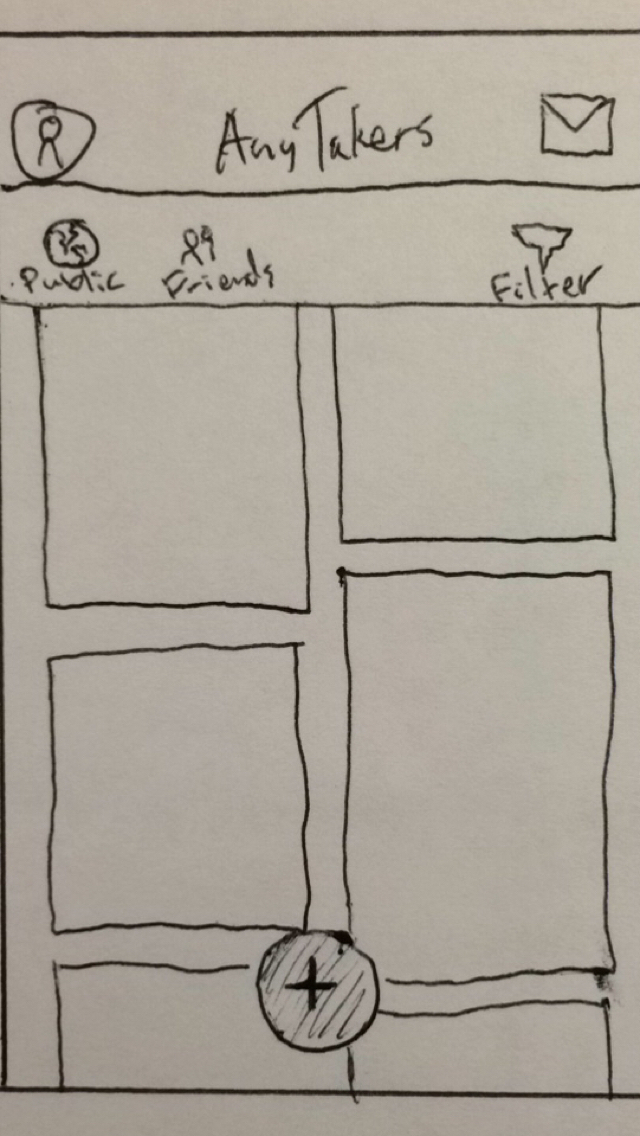 AnyTakers
Public Friends Filter
+